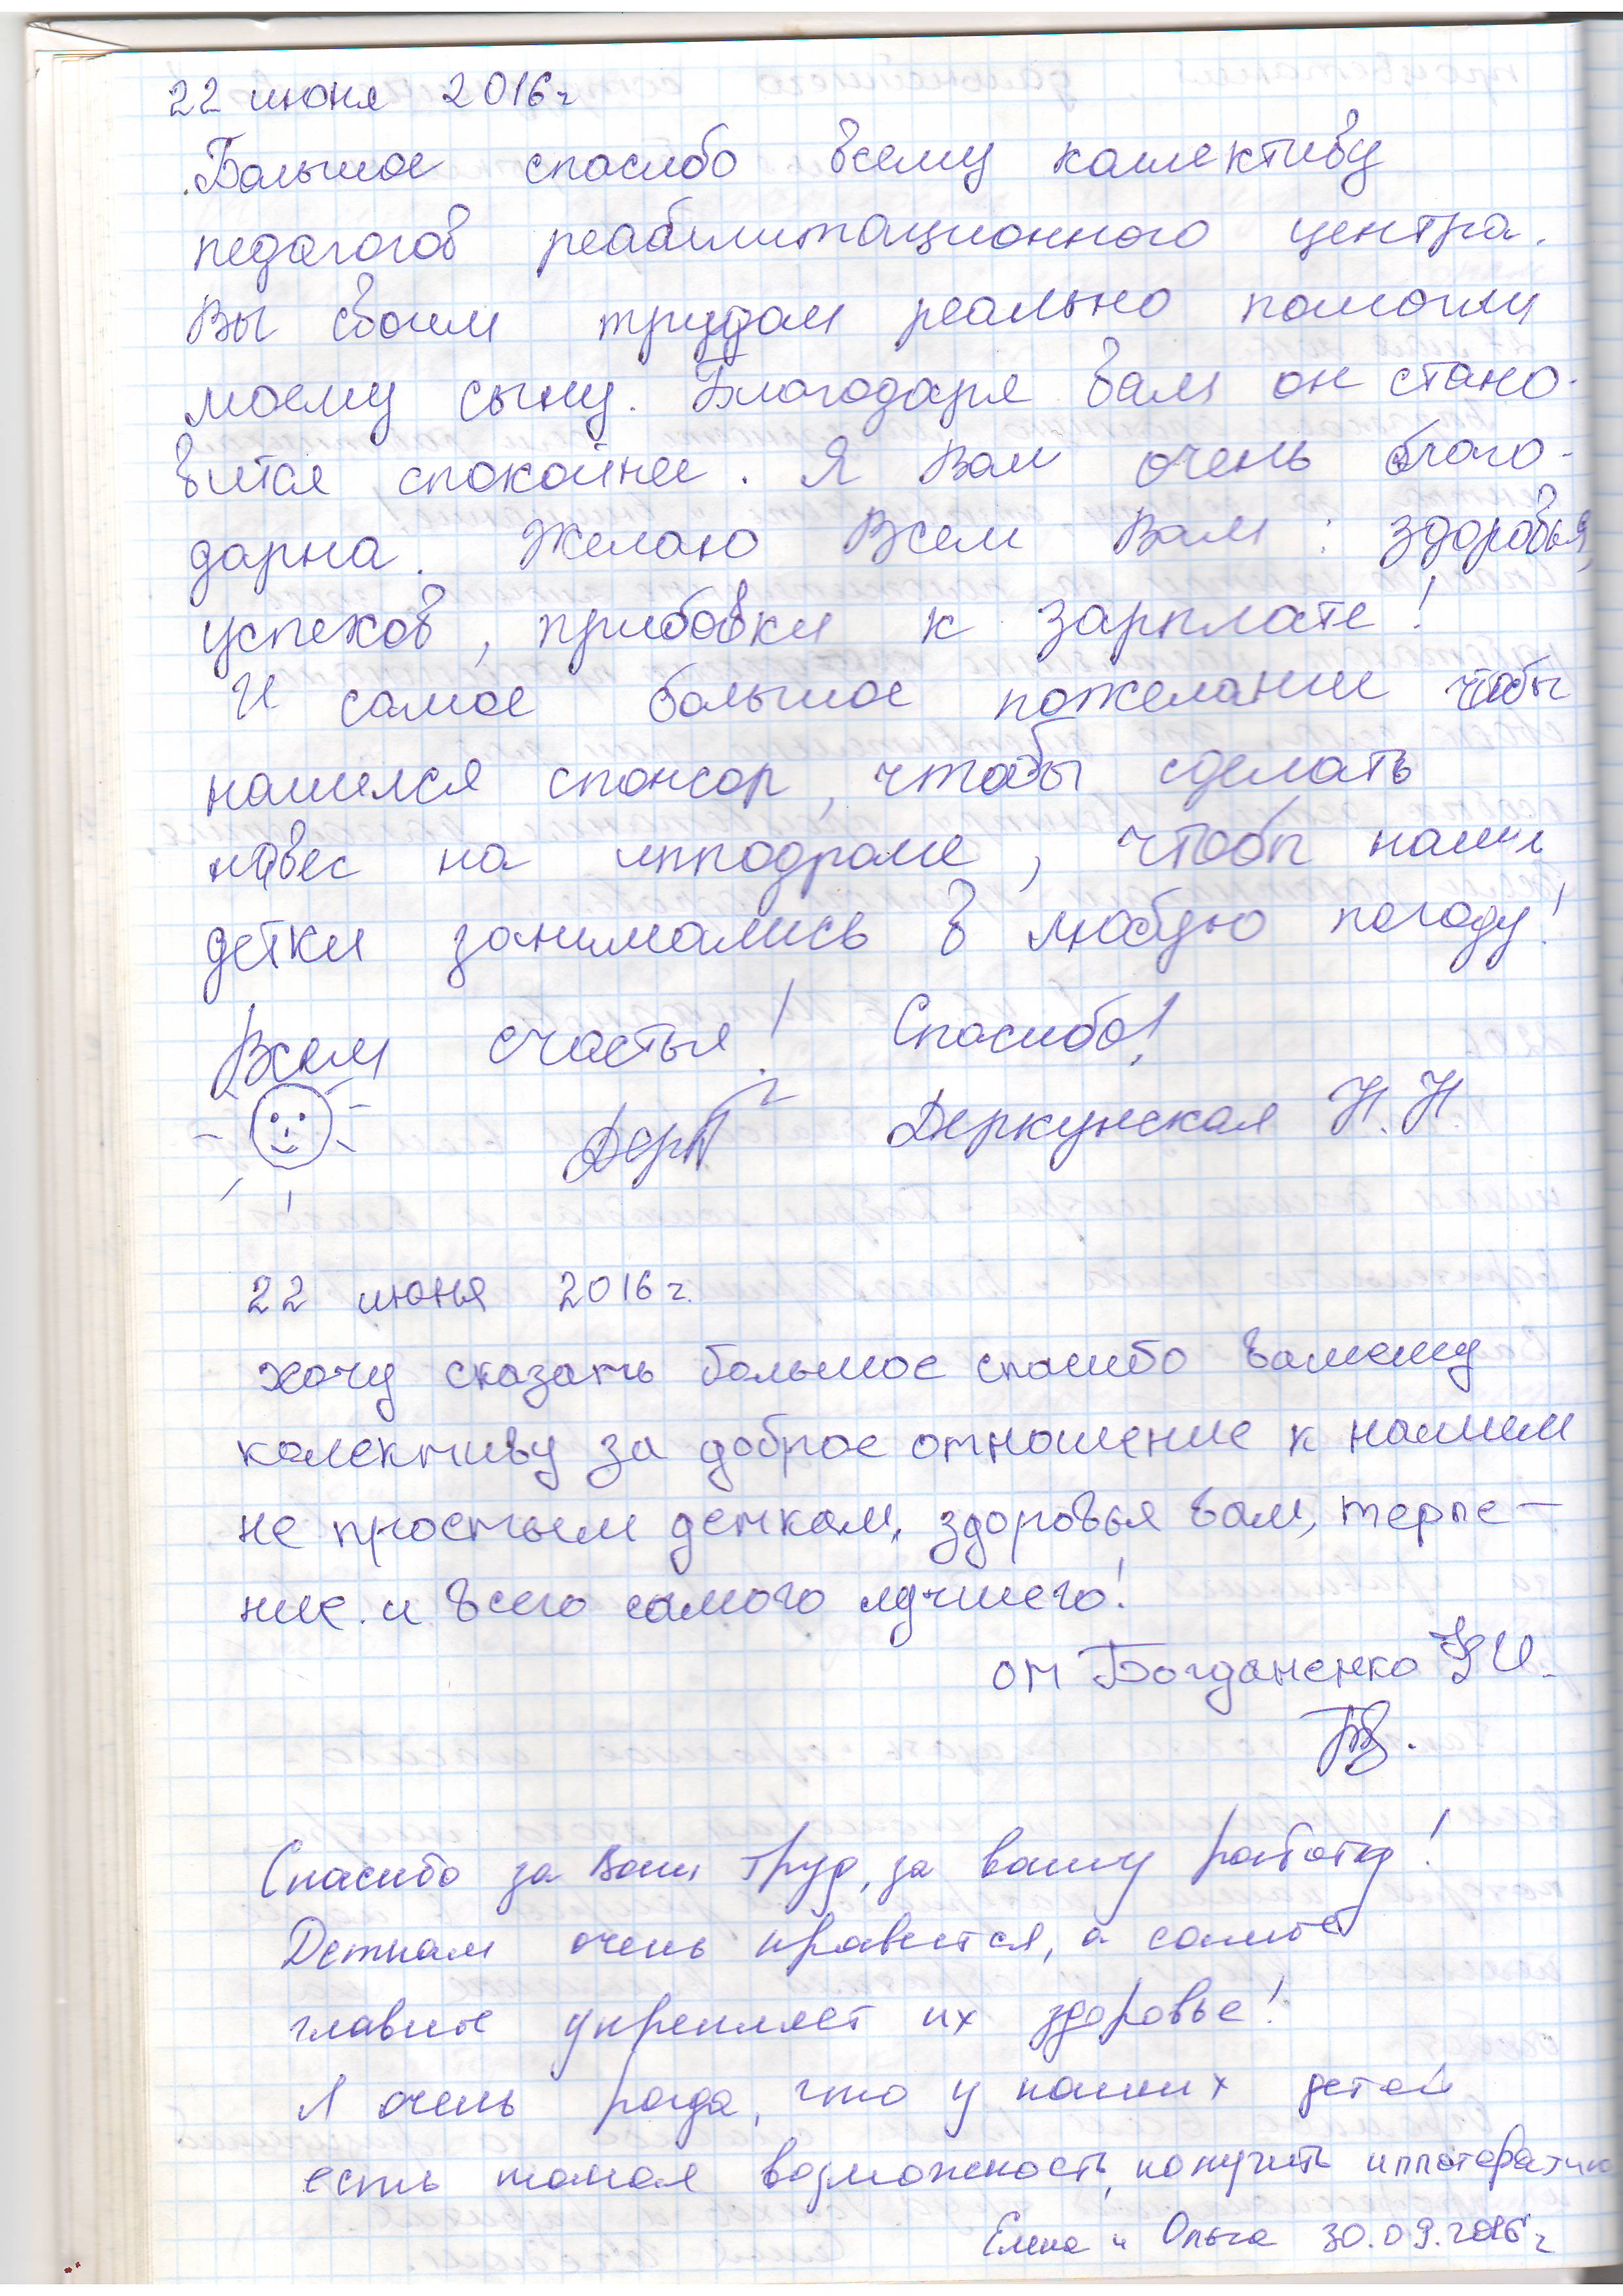 22 июня 2016г
Большое спасибо всему коллективу
педагогов реабилитационного центра.
Вы своим трудом реально помогли
моему сыну. Благодаря вам он стано-
вится спокойнее. Я Вам очень благо-
дарна. Желаю Всем Вам: здоровья,
успехов, прибовки к зарплате!
И самое большое пожелание чтобы
нашелся спонсор, чтобы сделать
навес на ипподроме, чтобы наши
детки занимались в любую погоду!
Всем счастья! Спасибо!
Деркунская Н.Н.
22 июня 2016г.
хочу сказать большое спасибо вашему
колективу за доброе отношение к нашим
не простым деткам, здоровья вам, терпе-
ние и всего самого лучшего!
от Богданенко И.
Спасибо за Ваш труд, за вашу работу!
Деткам очень нравится, а самое
главное укрепляет их здоровье!
Я очень рада, что у наших детей
есть такая возможность, получить
Елена и Ольга 30.09.2016г